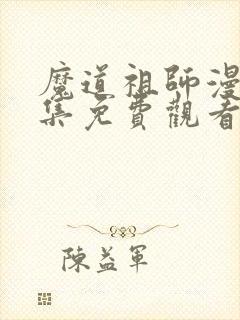 魔道祖師漫
集免費觀看
陳益軍